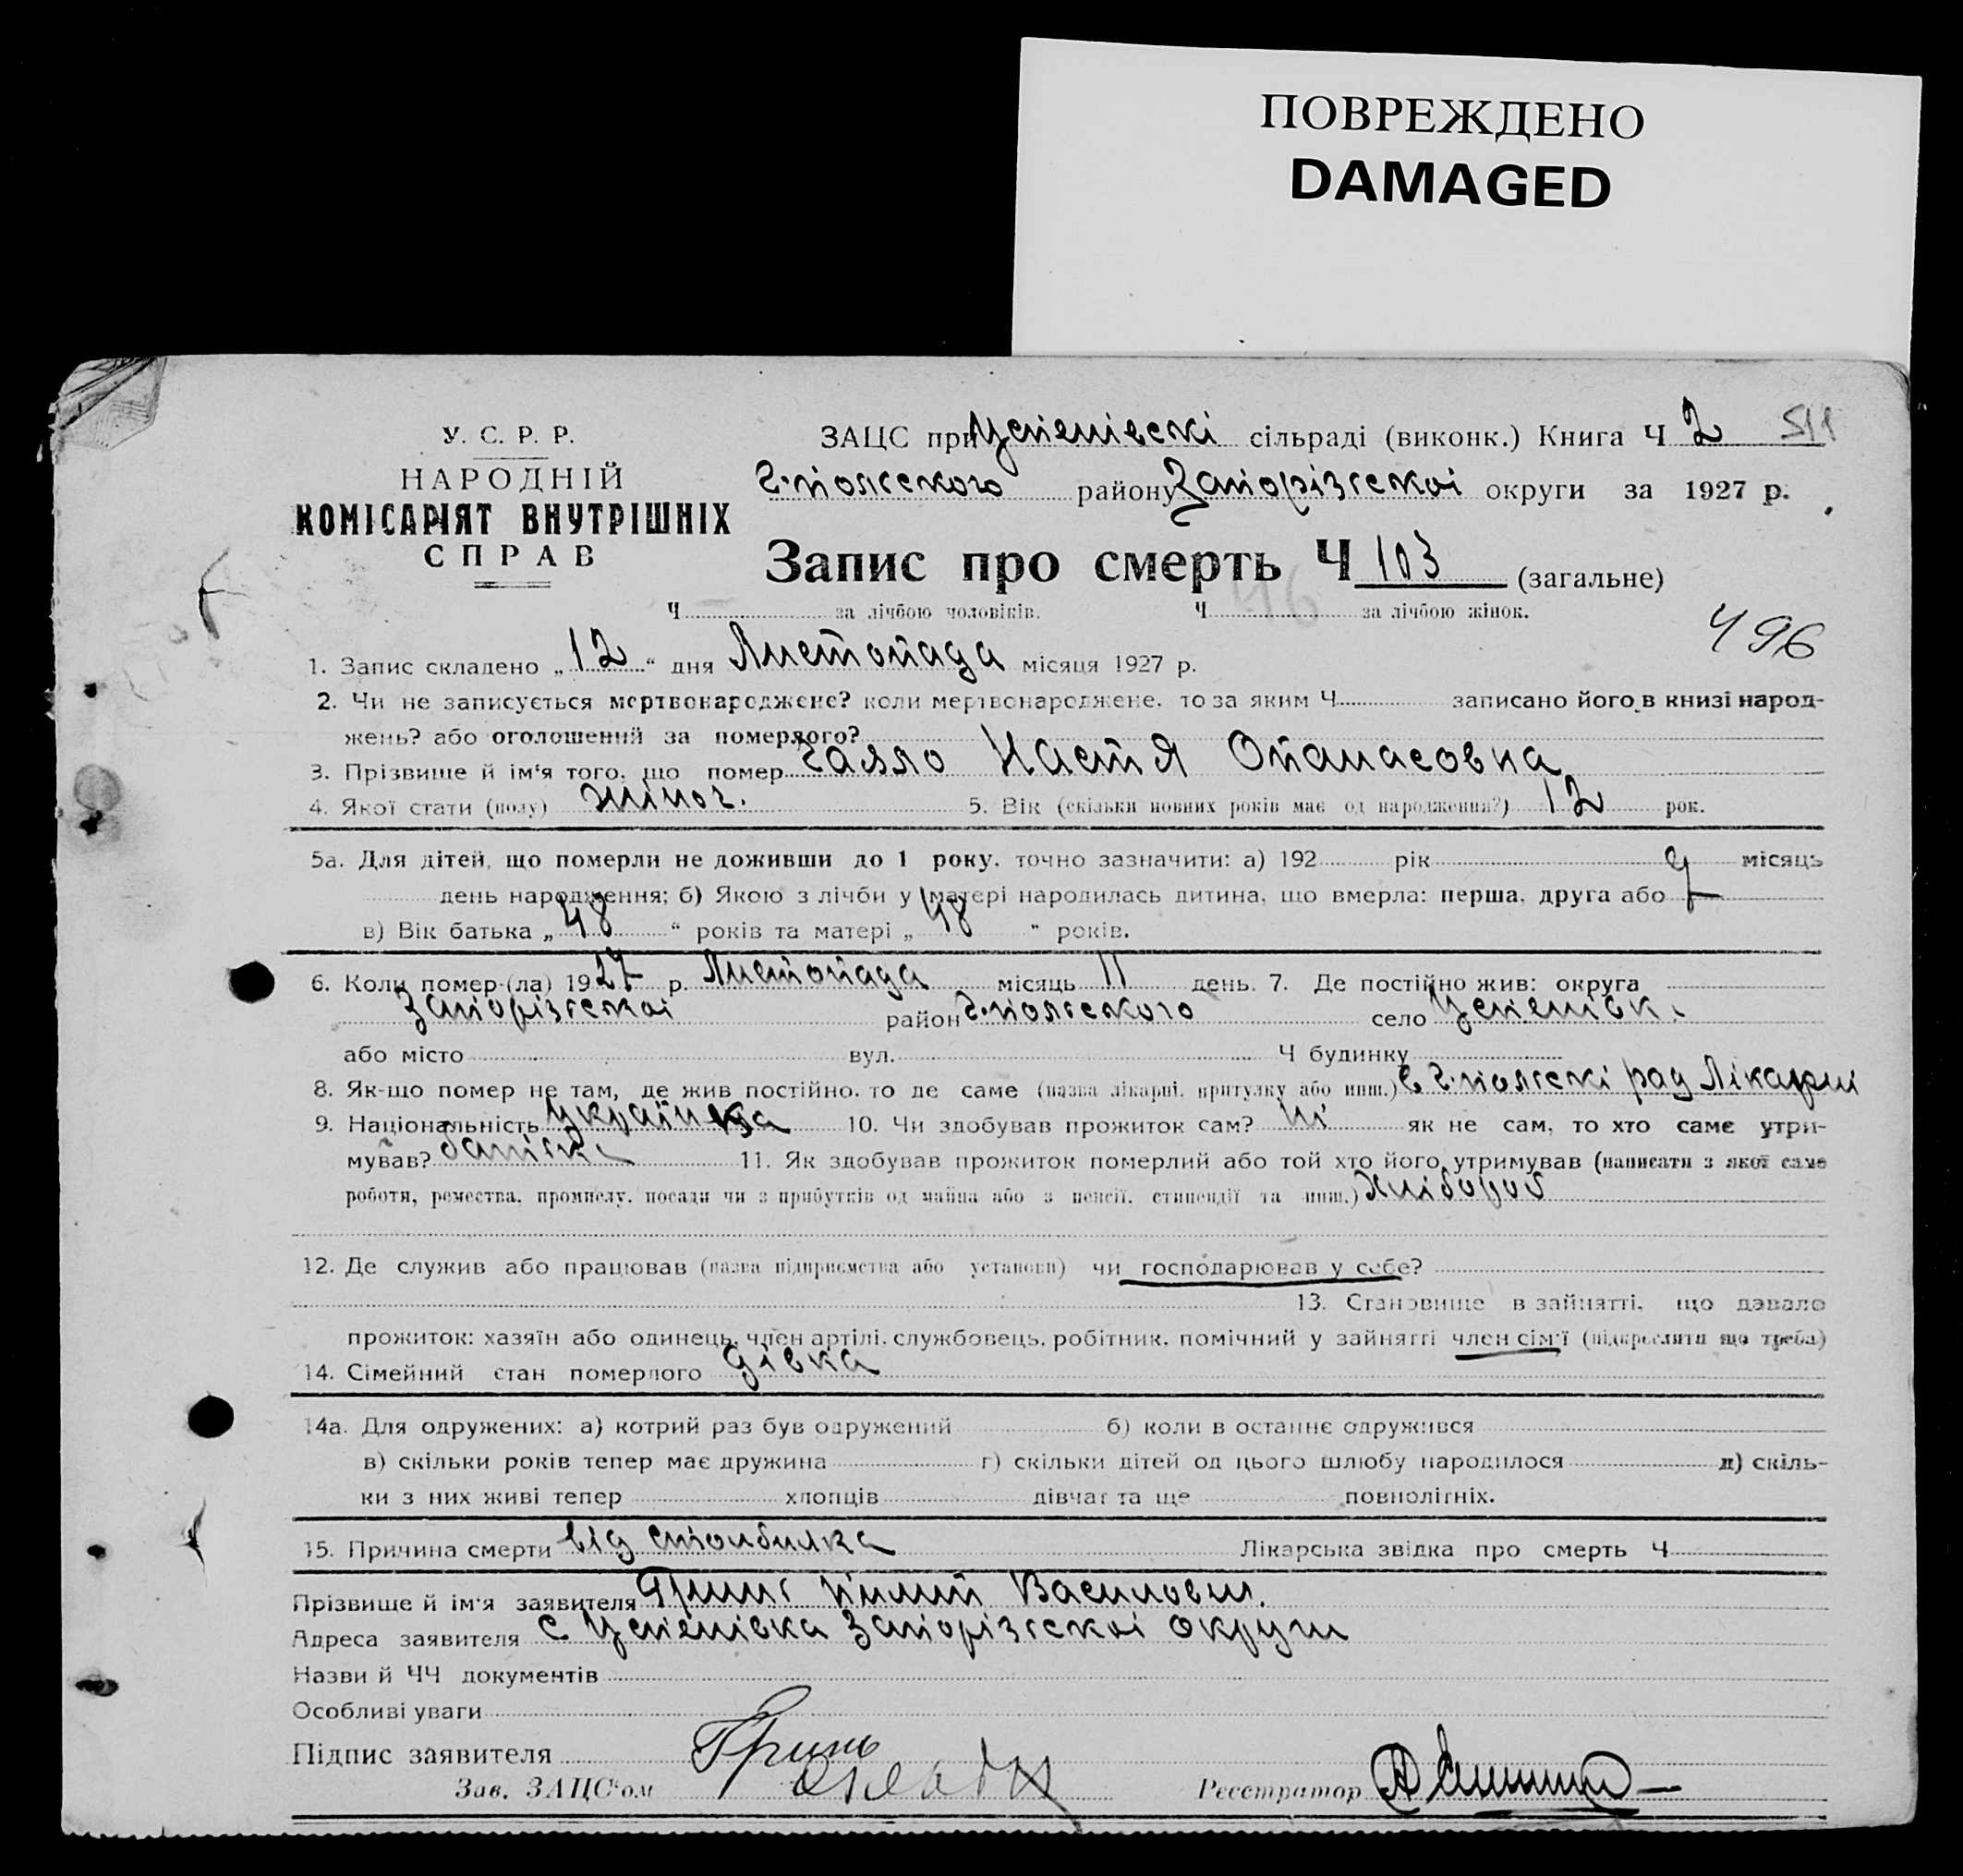 ПОВРЕЖДЕНО
DAMAGED
У. С. Р. Р.
НАРОДНІЙ
КОМІСАРІЯТ ВНУТРІШНІХ
СПРАВ
ЗАЦС при Успенівскі сільраді (виконк.) Книга Ч 2 511
Г.-польського району Запорізськоі округи за 1927 р.
Запис про смерть Ч 103 (загальне)
Ч за лічбою чоловіків. Ч 46 за лічбою жінок.
496
1. Запис складено „12“ дня Листопада місяця 1927 р.
2. Чи не записується мертвонароджене? коли мертвонароджене, то за яким Ч записано його в книзі народ-
жень? або оголошений за померлого?
3. Прізвище й ім'я того, що помер Настя Опанасовна
4. Якої статі (полу) жіноч. 5. Вік (скільки повних років має од народження?) 12 рок.
5а. Для дітей, що померли не доживши до 1 року, точно зазначити: а) 192 рік місяць
день народження; б) Якою з лічби у матері народилась дитина, що вмерла: перша, друга або
в) Вік батька „48“ років та матері „48“ років.
6. Коли помер-(ла) 1927 р. Листопада місяць 11 день. 7. Де постійно жив: округа
Запорізськоі район Г.-польського село Успенівк.
або місто вул. Ч будинку
8. Як-що помер не там, де жив постійно, то де саме (назва лікарні, притулку або инш.) в Г.-польскі рад Лікарні
9. Національність українка 10. Чи здобував прожиток сам? ні як не сам, то хто саме утри-
мував? батько 11. Як здобував прожиток померлий або той хто його утримував (написати з якої саме
роботи, ремества, промислу, посади чи з прибутків од майна або з пенсії, стипендії та инш.) Хлібороб
12. Де служив або працював (назва підприємства або установи) чи господарював у себе?
13. Становище в зайнятті, що давало
прожиток: хазяїн або одинець, член артілі, службовець, робітник, помічний у зайнятті член сім'ї (підкреслити що треба)
14. Сімейний стан померлого дівка
14а. Для одружених: а) котрий раз був одружений б) коли в останнє одружився
в) скільки років тепер має дружина г) скільки дітей од цього шлюбу народилося д) скіль-
ки з них живі тепер хлопців дівчат та ще повнолітніх.
15. Причина смерти від столбняка Лікарська звідка про смерть Ч
Прізвище й ім'я заявителя Гринь Василович.
Адреса заявителя с Успенівка Запорізськоі округи
Назви й ЧЧ документів
Особливі уваги
Підпис заявителя Гринь
Зав. ЗАЦС'ом Реєстратор